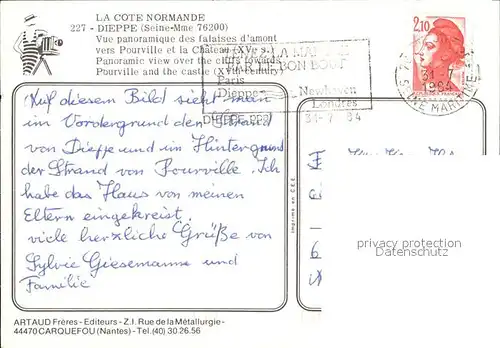 LA COTE NORMANDE
227 - DIEPPE (Seine-Mme 76200)
Vue panoramique des falaises d'amont
vers Pourville et la Château (XVe s.)
Panoramic view over the cliffs towards
Pourville and the castle (XVth century)
LA MA
PAR LE BON BOUT
Paris
Dieppe
Newhaven
Londres
DIEPPE
31-7 84
2,10
31-7
1984
SEINE MARITIME
Auf diesem Bild sieht man
im Vordergrund den Strand
von Dieppe und im Hintergrund
der Strand von Pourville. Ich
habe das Haus von meinen
Eltern eingekreist.
viele herzliche Grüße von
Sylvie Giesemanne und
Familie
Imprimé en C.E.E.
privacy protection
Datenschutz
ARTAUD Frères - Editeurs - Z.I. Rue de la Métallurgie -
44470 CARQUEFOU (Nantes) - Tel. (40) 30.26.56